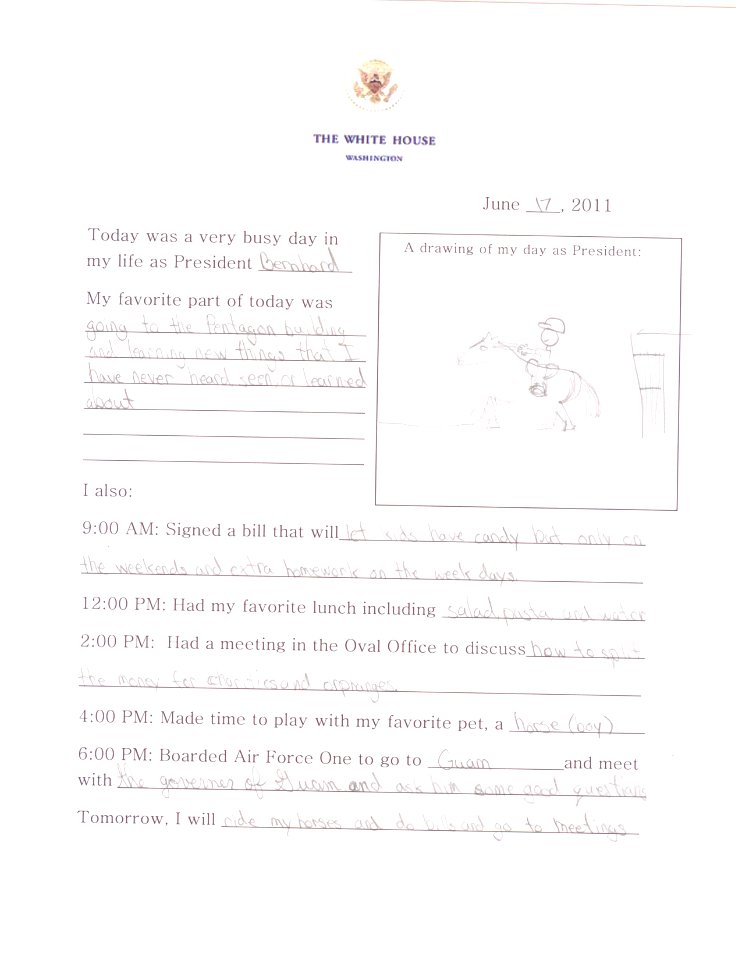 THE WHITE HOUSE
WASHINGTON
June 17, 2011
Today was a very busy day in
my life as President Bernhard
My favorite part of today was
going to the Pentagon building
and learning new things that I
have never heard seen or learned
about
A drawing of my day as President:
I also:
9:00 AM: Signed a bill that will let kids have candy but only on
the weekends and extra homework on the week days.
12:00 PM: Had my favorite lunch including salad, pasta and water
2:00 PM: Had a meeting in the Oval Office to discuss how to split
the money for charries and orpranges.
4:00 PM: Made time to play with my favorite pet, a horse (boy)
6:00 PM: Boarded Air Force One to go to Guam and meet
with the governer of Guam and ask him some good questions
Tomorrow, I will ride my horses and do bills and go to meetings